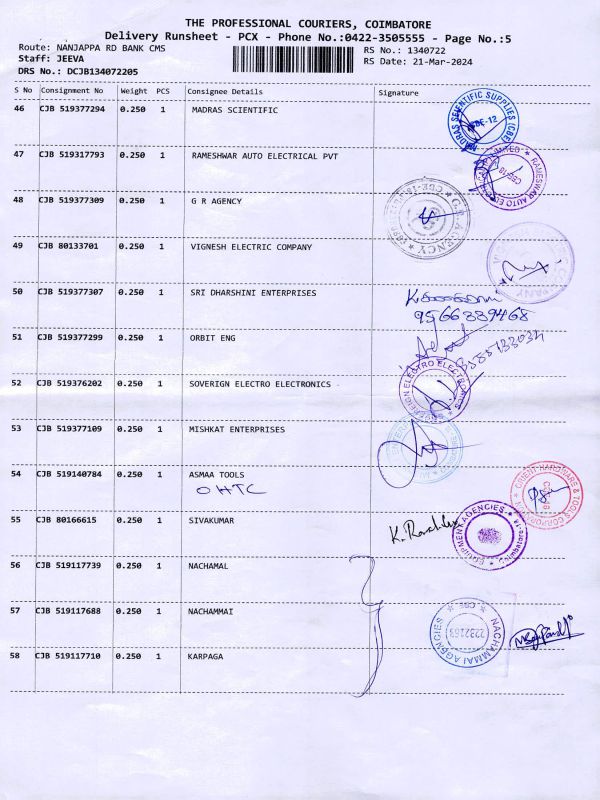 THE PROFESSIONAL COURIERS, COIMBATORE
Delivery Runsheet - PCX - Phone No.:0422-3505555 - Page No.:5
Route: NANJAPPA RD BANK CMS RS No.: 1340722
Staff: JEEVA RS Date: 21-Mar-2024
DRS No.: DCJB134072205
S No Consignment No Weight PCS Consignee Details Signature
46 CJB 519377294 0.250 1 MADRAS SCIENTIFIC
MADRAS SCIENTIFIC SUPPLIES (CBE) CBE-12
47 CJB 519317793 0.250 1 RAMESHWAR AUTO ELECTRICAL PVT
RAMESWAR AUTO LIMITED
48 CJB 519377309 0.250 1 G R AGENCY
G.R. AGENCY
49 CJB 80133701 0.250 1 VIGNESH ELECTRIC COMPANY
COMPANY
50 CJB 519377307 0.250 1 SRI DHARSHINI ENTERPRISES
9566339468
51 CJB 519377299 0.250 1 ORBIT ENG
52 CJB 519376202 0.250 1 SOVERIGN ELECTRO ELECTRONICS
SOVEREIGN ELECTRO ELECTRONICS
53 CJB 519377109 0.250 1 MISHKAT ENTERPRISES
54 CJB 519140784 0.250 1 ASMAA TOOLS
OHTC
ORIENT HARDWARE & TOOLS CORPORATION
55 CJB 80166615 0.250 1 SIVAKUMAR
EQUIPMENT AGENCIES Coimbatore
56 CJB 519117739 0.250 1 NACHAMAL
57 CJB 519117688 0.250 1 NACHAMMAI
NACHAMMAI AGENCIES CBE 2232163
58 CJB 519117710 0.250 1 KARPAGA